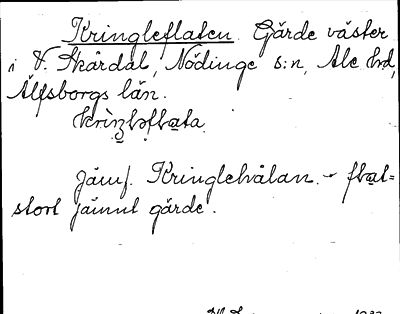 Kringleflaten. Gärde väster
i V. Skårdal, Nödinge s:n, Ale hd,
Älfsborgs län.
Jämf. Kringlehålan. - flat=
stort jämnt gärde.